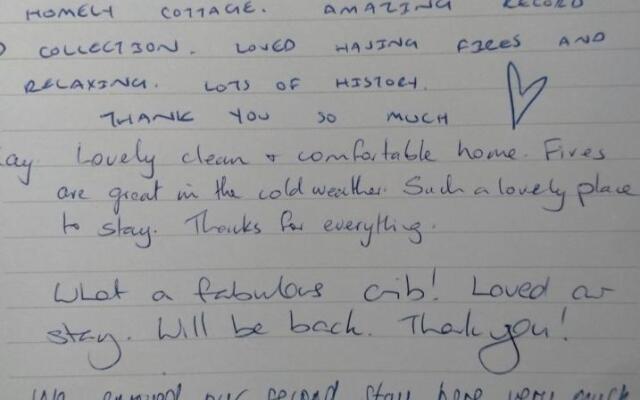 HOMELY COTTAGE. AMAZING RECORD
COLLECTION. LOVED HAVING FIRES AND
RELAXING. LOTS OF HISTORY.
THANK YOU SO MUCH
Lovely clean & comfortable home. Fires
are great in the cold weather. Such a lovely place
to stay. Thanks for everything.
What a fabulous crib! Loved our
stay. Will be back. Thank you!
We enjoyed our second stay here very much